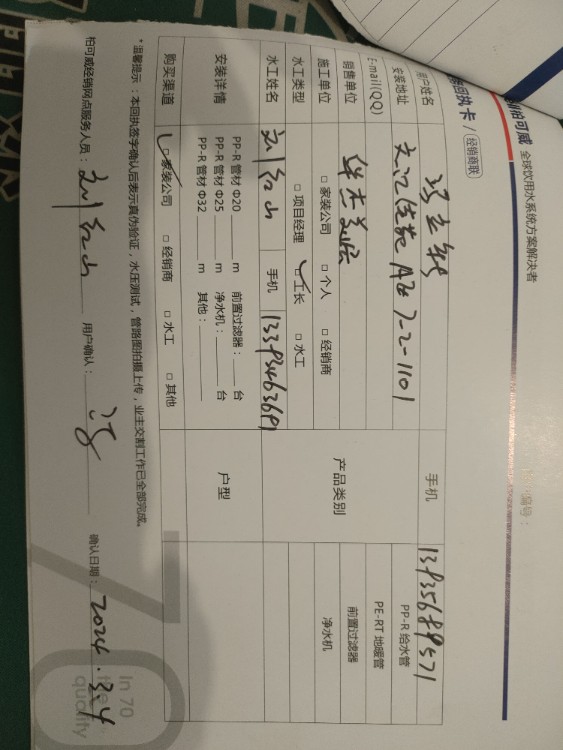 柏可威 全球饮用水系统方案解决者
回执卡 / 经销商联
用户姓名 手机 13935689571
安装地址 7-2-1101 PP-R 给水管
E-mail(QQ) PE-RT 地暖管
销售单位 产品类别 前置过滤器
施工单位 □ 家装公司 □ 个人 □ 经销商 净水机
水工类型 □ 项目经理 □ 工长 □ 水工
水工姓名 刘红山 手机
安装详情 PP-R 管材 Φ20 m 前置过滤器： 台 户型
PP-R 管材 Φ25 m 净水机： 台
PP-R 管材 Φ32 m 其他：
购买渠道 □ 家装公司 □ 经销商 □ 水工 □ 其他
*温馨提示：本回执签字确认后表示真伪验证，水压测试，管路图拍摄上传，业主交割工作已全部完成。
柏可威经销网点服务人员：刘红山 用户确认： 确认日期：2024.3.4
In 70
the
quality